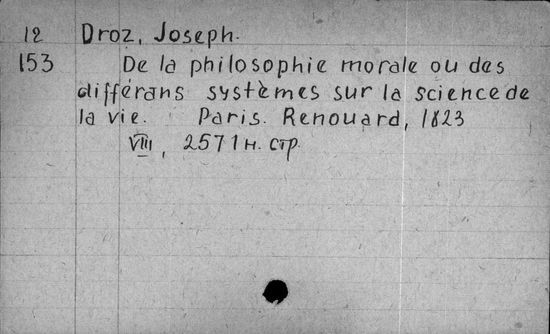 12 Droz, Joseph.
153 De la philosophie morale ou des
différans systèmes sur la science de
la vie. Paris. Renouard, 1823
VIII, 257 1 н. стр.